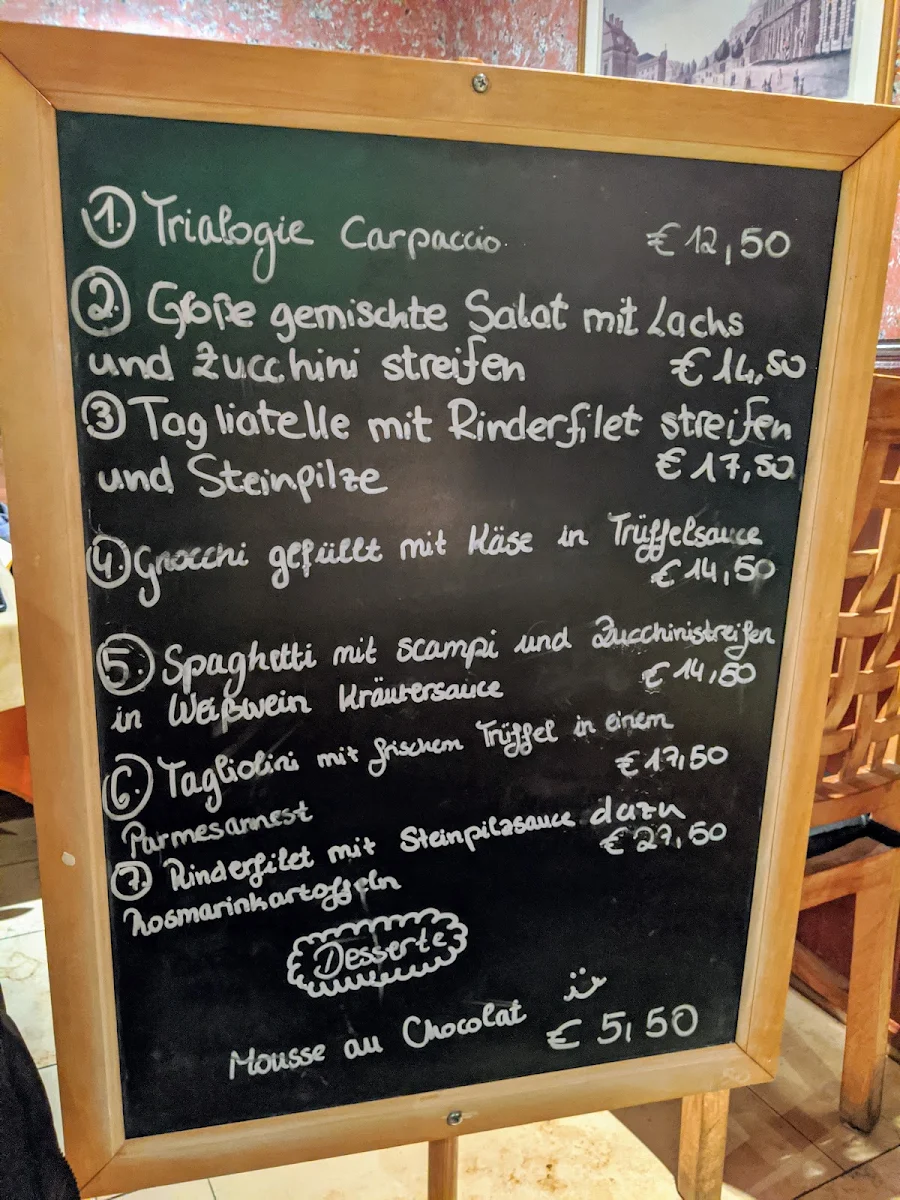 1. Trialogie Carpaccio € 12,50
2. Große gemischte Salat mit Lachs
und Zucchini streifen € 14,50
3 Tagliatelle mit Rinderfilet streifen
und Steinpilze € 17,50
4. Gnocchi gefüllt mit Käse in Trüffelsauce
€ 14,50
5. Spaghetti mit scampi und Zucchinistreifen
in Weißwein Kräutersauce € 14,50
6. Tagliolini mit frischem Trüffel in einem
Parmesannest € 17,50
7. Rinderfilet mit Steinpilzsauce dazu
Rosmarinkartoffeln € 27,50
Desserte
Mousse au Chocolat € 5,50